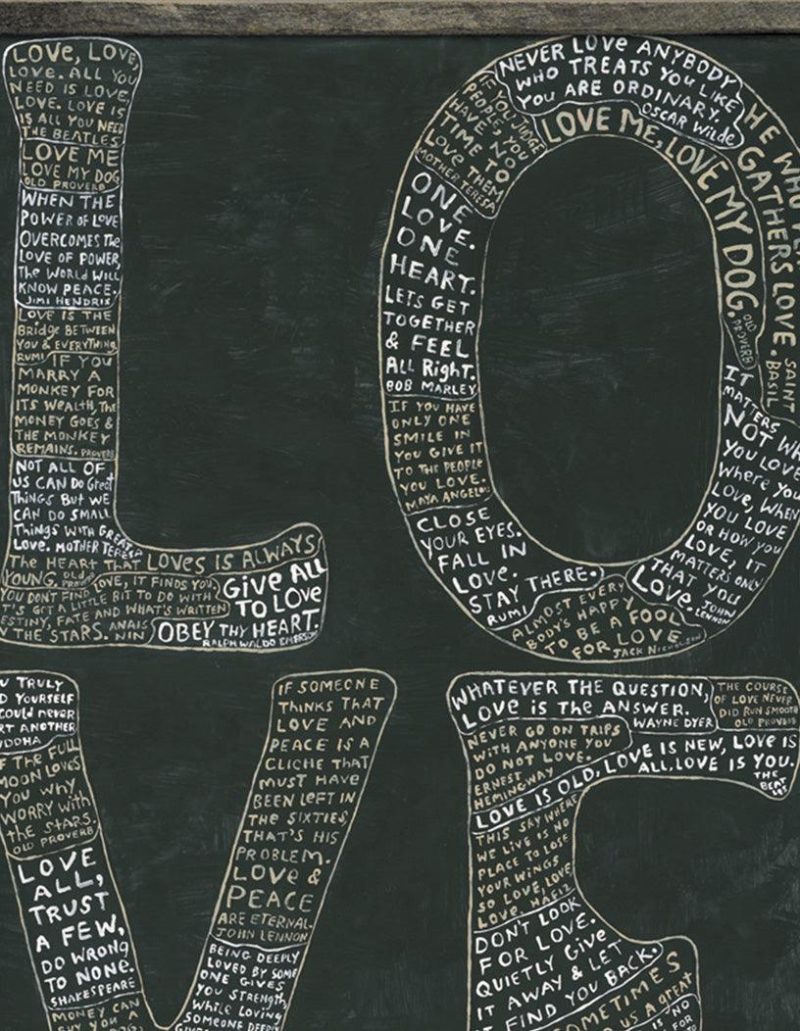 LOVE, LOVE,
LOVE. ALL YOU
NEED IS LOVE,
LOVE. LOVE IS
IS ALL YOU NEED
THE BEATLES
LOVE ME
LOVE MY DOG
OLD PROVERB
WHEN THE
POWER OF LOVE
OVERCOMES THE
LOVE OF POWER,
THE WORLD WILL
KNOW PEACE.
JIMI HENDRIX
LOVE IS THE
BRIDGE BETWEEN
YOU & EVERYTHING.
RUMI IF YOU
MARRY A
MONKEY FOR
ITS WEALTH, THE
MONEY GOES &
THE MONKEY
REMAINS. PROVERB
NOT ALL OF
US CAN DO GREAT
THINGS BUT WE
CAN DO SMALL
THINGS WITH GREAT
LOVE. MOTHER TERESA
THE HEART THAT LOVES IS ALWAYS
YOUNG. OLD PROVERB
LOVE, IT FINDS YOU
YOU DON'T FIND
IT'S GOT A LITTLE BIT TO DO WITH
DESTINY, FATE AND WHAT'S WRITTEN
IN THE STARS. ANAIS
NIN
GIVE ALL
TO LOVE
OBEY THY HEART.
RALPH WALDO EMERSON
NEVER LOVE ANYBODY
WHO TREATS YOU LIKE
YOU ARE ORDINARY.
OSCAR WILDE
IF YOU JUDGE
PEOPLE, YOU
HAVE NO
TIME TO
LOVE THEM
MOTHER TERESA
LOVE ME, LOVE MY DOG.
OLD
PROVERB
HE WHO
GATHERS LOVE.
SAINT
BASIL
ONE
LOVE.
ONE
HEART.
LETS GET
TOGETHER
& FEEL
ALL RIGHT.
BOB MARLEY
IF YOU HAVE
ONLY ONE
SMILE IN
YOU GIVE IT
TO THE PEOPLE
YOU LOVE.
MAYA ANGELOU
CLOSE
YOUR EYES.
FALL IN
LOVE.
STAY THERE.
RUMI
ALMOST EVERY
BODY'S HAPPY
TO BE A FOOL
FOR LOVE
JACK NICHOLSON
IT
MATTERS
NOT WH
YOU LOVE
WHERE YOU
LOVE, WHEN
YOU LOVE
OR HOW YOU
LOVE, IT
MATTERS ONLY
THAT YOU
LOVE. JOHN
LENNON
U TRULY
D YOURSELF
COULD NEVER
RT ANOTHER
UDDHA
F THE FULL
MOON LOVES
YOU WHY
WORRY WITH
THE STARS.
OLD PROVERB
LOVE
ALL,
TRUST
A FEW,
DO WRONG
TO NONE.
SHAKESPEARE
MONEY CAN
BUY YOU A
IF SOMEONE
THINKS THAT
LOVE AND
PEACE IS A
CLICHE THAT
MUST HAVE
BEEN LEFT IN
THE SIXTIES,
THAT'S HIS
PROBLEM.
LOVE &
PEACE
ARE ETERNAL.
JOHN LENNON
BEING DEEPLY
LOVED BY SOME
ONE GIVES
YOU STRENGTH
WHILE LOVING
SOMEONE DEEPLY
WHATEVER THE QUESTION,
LOVE IS THE ANSWER.
WAYNE DYER
THE COURSE
OF LOVE NEVER
DID RUN SMOOTH
OLD PROVERB
NEVER GO ON TRIPS
WITH ANYONE YOU
DO NOT LOVE.
ERNEST
HEMINGWAY
LOVE IS OLD, LOVE IS NEW, LOVE IS
ALL. LOVE IS YOU.
THE
BEAT
LES
THIS SKY WHERE
WE LIVE IS NO
PLACE TO LOSE
YOUR WINGS
SO LOVE, LOVE
LOVE. HAFIZ
DON'T LOOK
FOR LOVE.
QUIETLY GIVE
IT AWAY & LET
IT FIND YOU BACK.
SOMETIMES
US A GREAT
NO
FOR